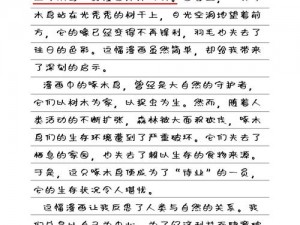 木鸟站在光秃秃的树干上，目光空洞地望着前
方，它的喙已经变得不再锋利，羽毛也失去了
往日的色彩。这幅漫画虽然简单，却给我带来
了深刻的启示。
漫画中的啄木鸟，曾经是大自然的守护者，
它们以树木为家，以捉虫为生。然而，随着人
类活动的不断扩张，森林被大面积砍伐，啄木
鸟们的生存环境遭到了严重破坏。它们失去了
栖息的家园，也失去了赖以生存的食物来源。
于是，这只啄木鸟便成为了“待业”的一员，
它的生存状况令人堪忧。
这幅漫画让我反思了人类与自然的关系。我